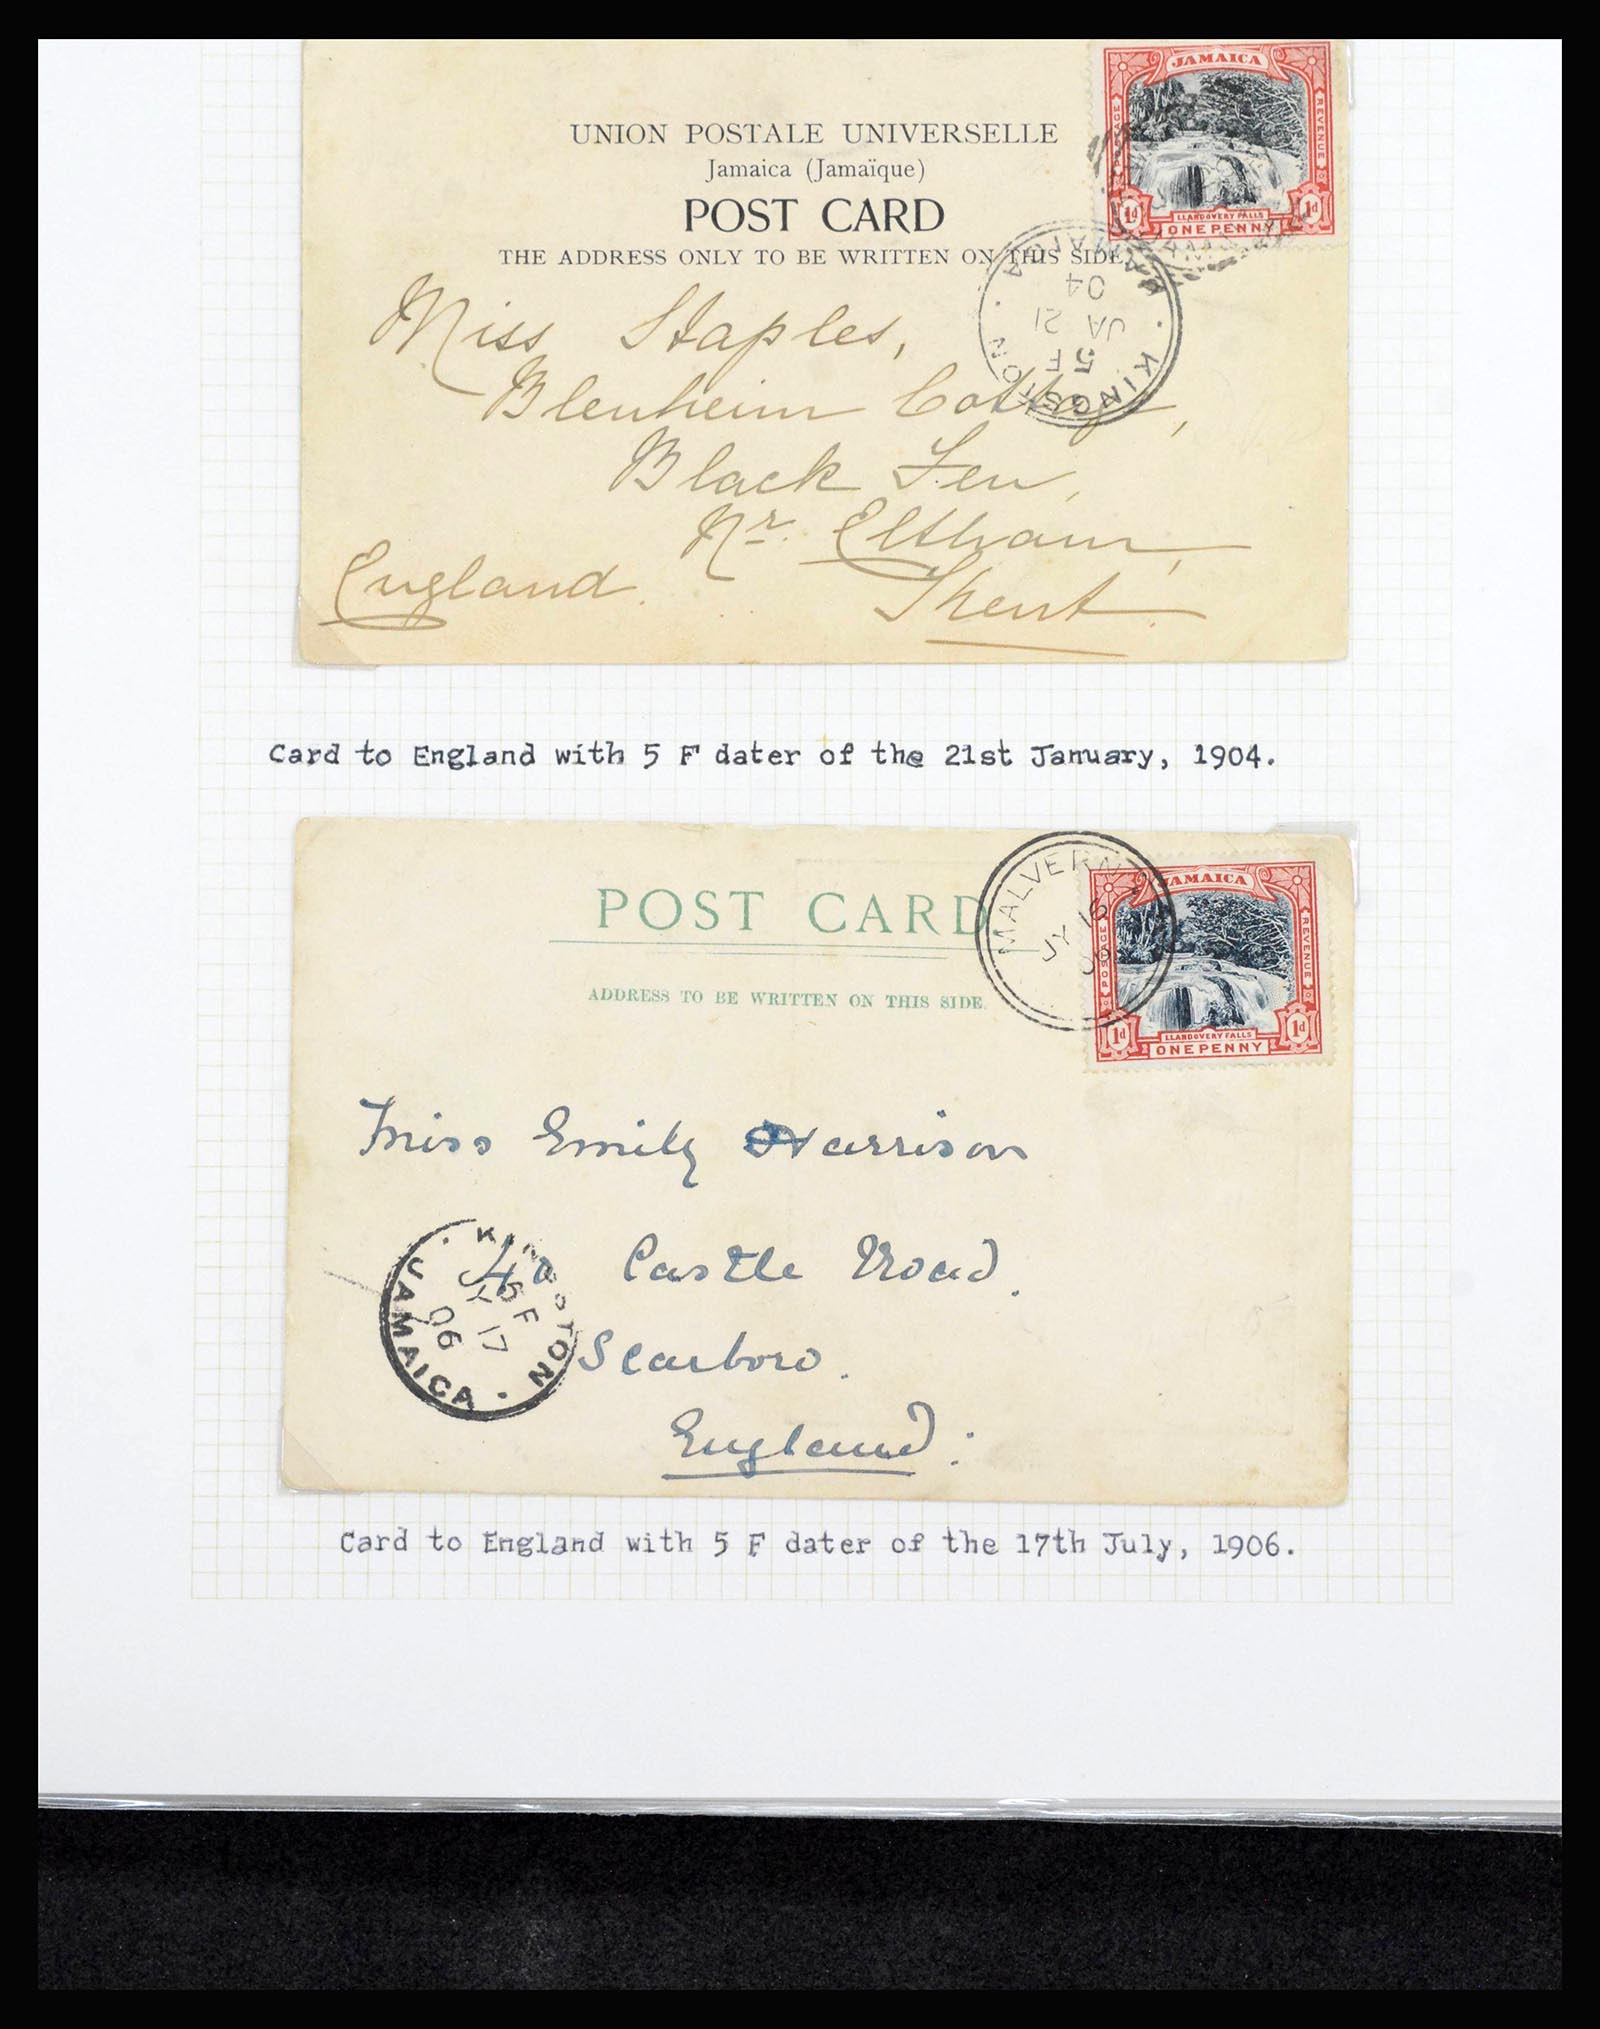 JAMAICA
POSTAGE
REVENUE
1d
LLANDOVERY FALLS
1d
ONE PENNY
UNION POSTALE UNIVERSELLE
Jamaica (Jamaïque)
POST CARD
THE ADDRESS ONLY TO BE WRITTEN ON THIS SIDE
KINGSTON · JAMAICA ·
5 F
JA 21
04
Miss Staples,
Blenheim Cottage,
Black Fen,
Nr. Eltham,
Kent.
England.
Card to England with 5 F dater of the 21st January, 1904.
POST CARD
ADDRESS TO BE WRITTEN ON THIS SIDE.
MALVERN
JY 16
06
JAMAICA
POSTAGE
REVENUE
1d
LLANDOVERY FALLS
1d
ONE PENNY
Miss Emily Harrison
40 Castle Road.
Scarboro.
England:
· KINGSTON · JAMAICA
5 F
JY 17
06
Card to England with 5 F dater of the 17th July, 1906.